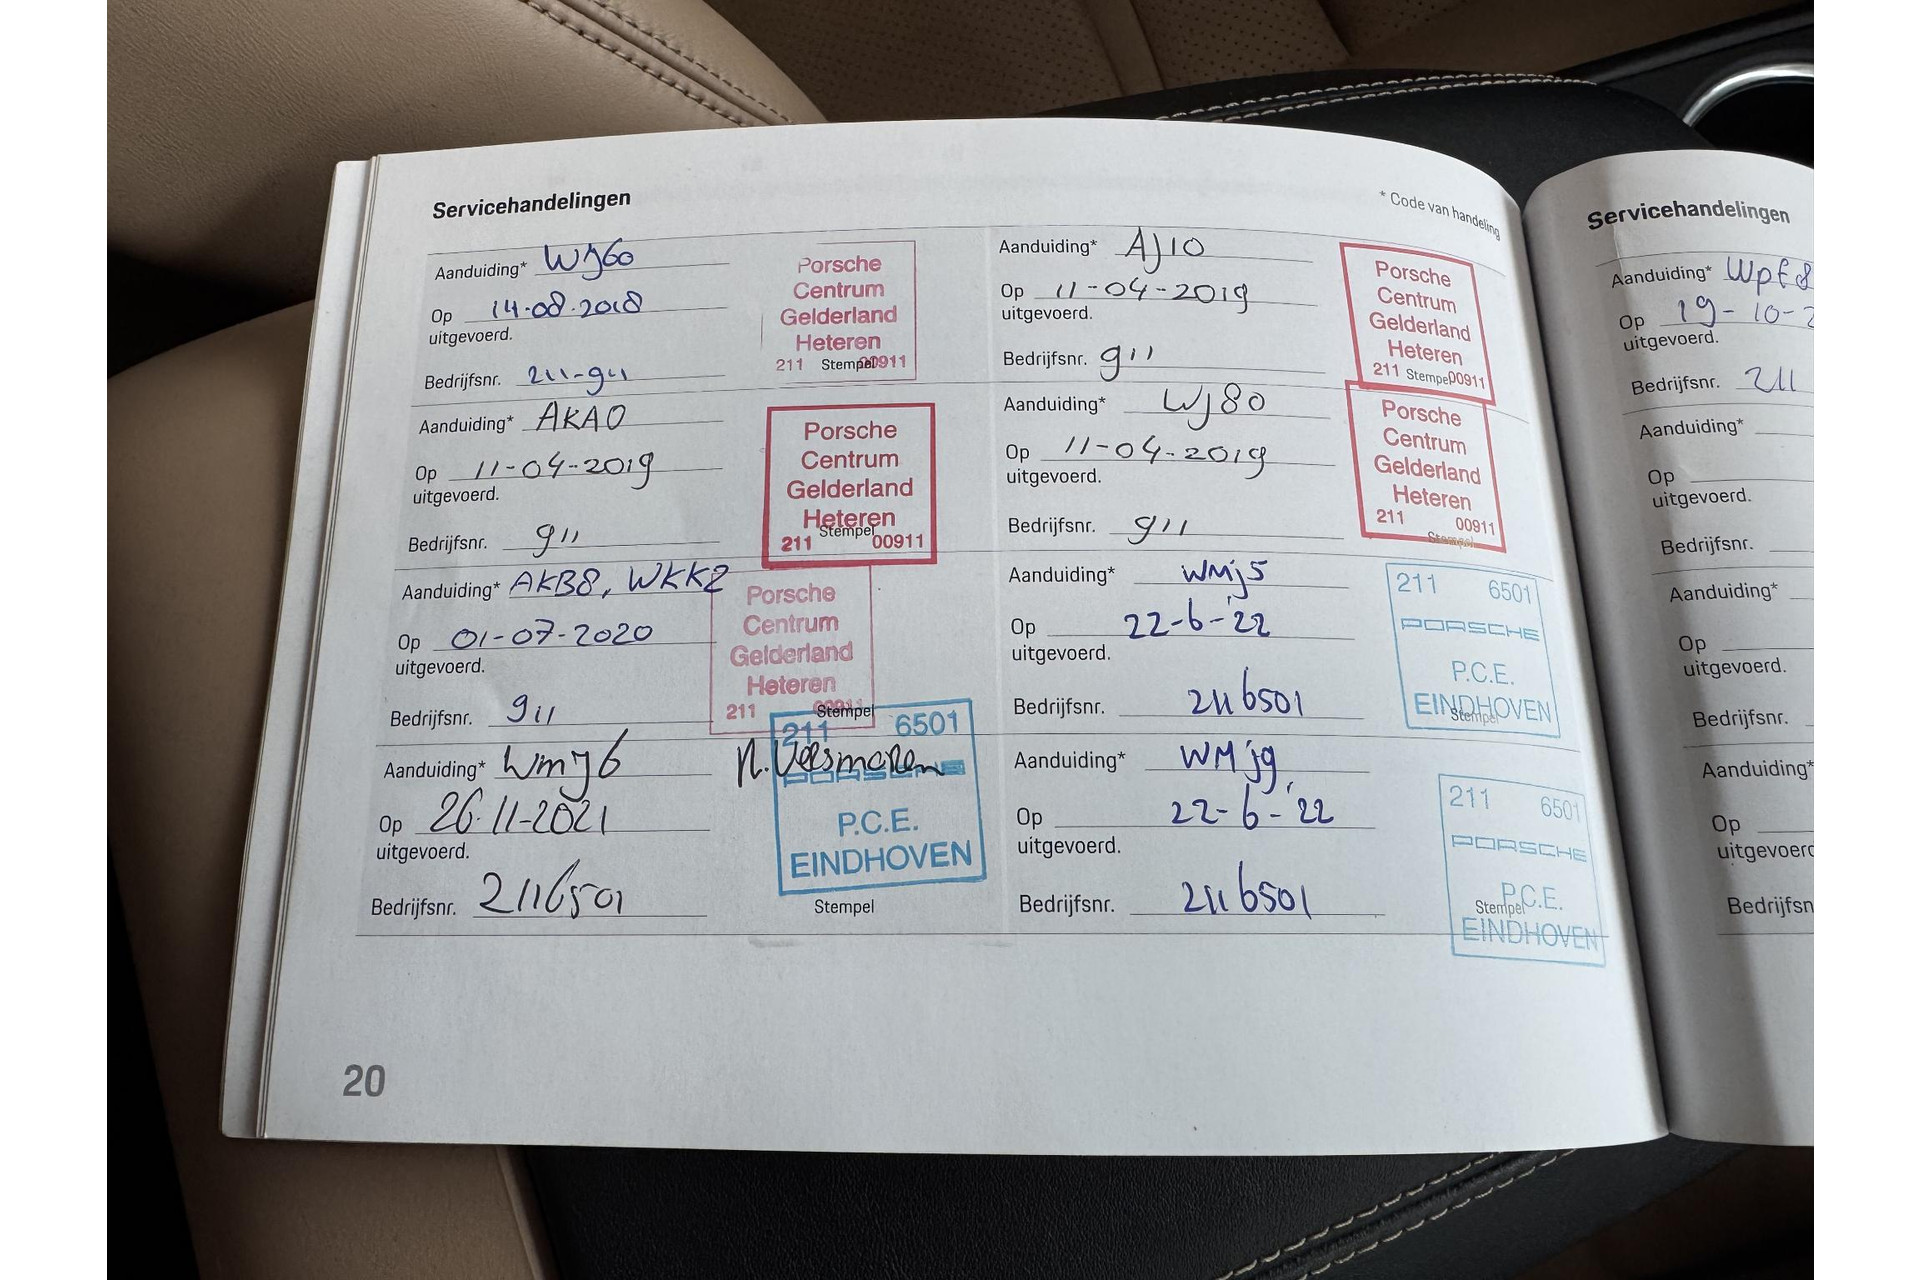 Servicehandelingen
* Code van handeling
Aanduiding* WJ60
Op 14-08-2018
uitgevoerd.
Bedrijfsnr. 211-911
Porsche
Centrum
Gelderland
Heteren
211 Stempel 00911
Aanduiding* AKA0
Op 11-04-2019
uitgevoerd.
Bedrijfsnr. 911
Porsche
Centrum
Gelderland
Heteren
Stempel
211 00911
Aanduiding* AKB8, WKK2
Op 01-07-2020
uitgevoerd.
Bedrijfsnr. 911
Porsche
Centrum
Gelderland
Heteren
211 00911
Stempel
Aanduiding* Wmj6
Op 26-11-2021
uitgevoerd.
Bedrijfsnr. 2116501
211 6501
PORSCHE
P.C.E.
EINDHOVEN
Stempel
Aanduiding* AJ10
Op 11-04-2019
uitgevoerd.
Bedrijfsnr. 911
Porsche
Centrum
Gelderland
Heteren
211 Stempel 00911
Aanduiding* WJ80
Op 11-04-2019
uitgevoerd.
Bedrijfsnr. 911
Porsche
Centrum
Gelderland
Heteren
211 00911
Stempel
Aanduiding* WMj5
Op 22-6-'22
uitgevoerd.
Bedrijfsnr. 2116501
211 6501
PORSCHE
P.C.E.
EINDHOVEN
Stempel
Aanduiding* WMj9
Op 22-6-'22
uitgevoerd.
Bedrijfsnr. 2116501
211 6501
PORSCHE
P.C.E.
Stempel
EINDHOVEN
20
Servicehandelingen
Aanduiding* Wpf8
Op 19-10-2
uitgevoerd.
Bedrijfsnr. 211
Aanduiding*
Op
uitgevoerd.
Bedrijfsnr.
Aanduiding*
Op
uitgevoerd.
Bedrijfsnr.
Aanduiding*
Op
uitgevoerd
Bedrijfsn